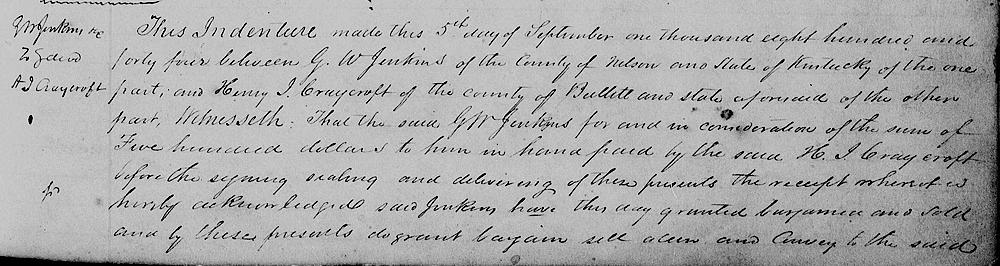 G W Jenkins &c
To } deed
H J Craycroft
This Indenture made this 5th day of September one thousand eight hundred and
forty four between G. W Jenkins of the County of Nelson and State of Kentucky of the one
part; and Henry J. Craycroft of the county of Bullitt and state aforesaid of the other
part, Witnesseth: That the said G W Jenkins for and in consideration of the sum of
Five hundred dollars to him in hand paid by the said H. J. Craycroft
before the signing sealing and delivering of these presents the receipt whereof is
hereby acknowledged said Jenkins have this day granted bargained and sold
and by these presents do grant bargain sell alien and Convey to the said